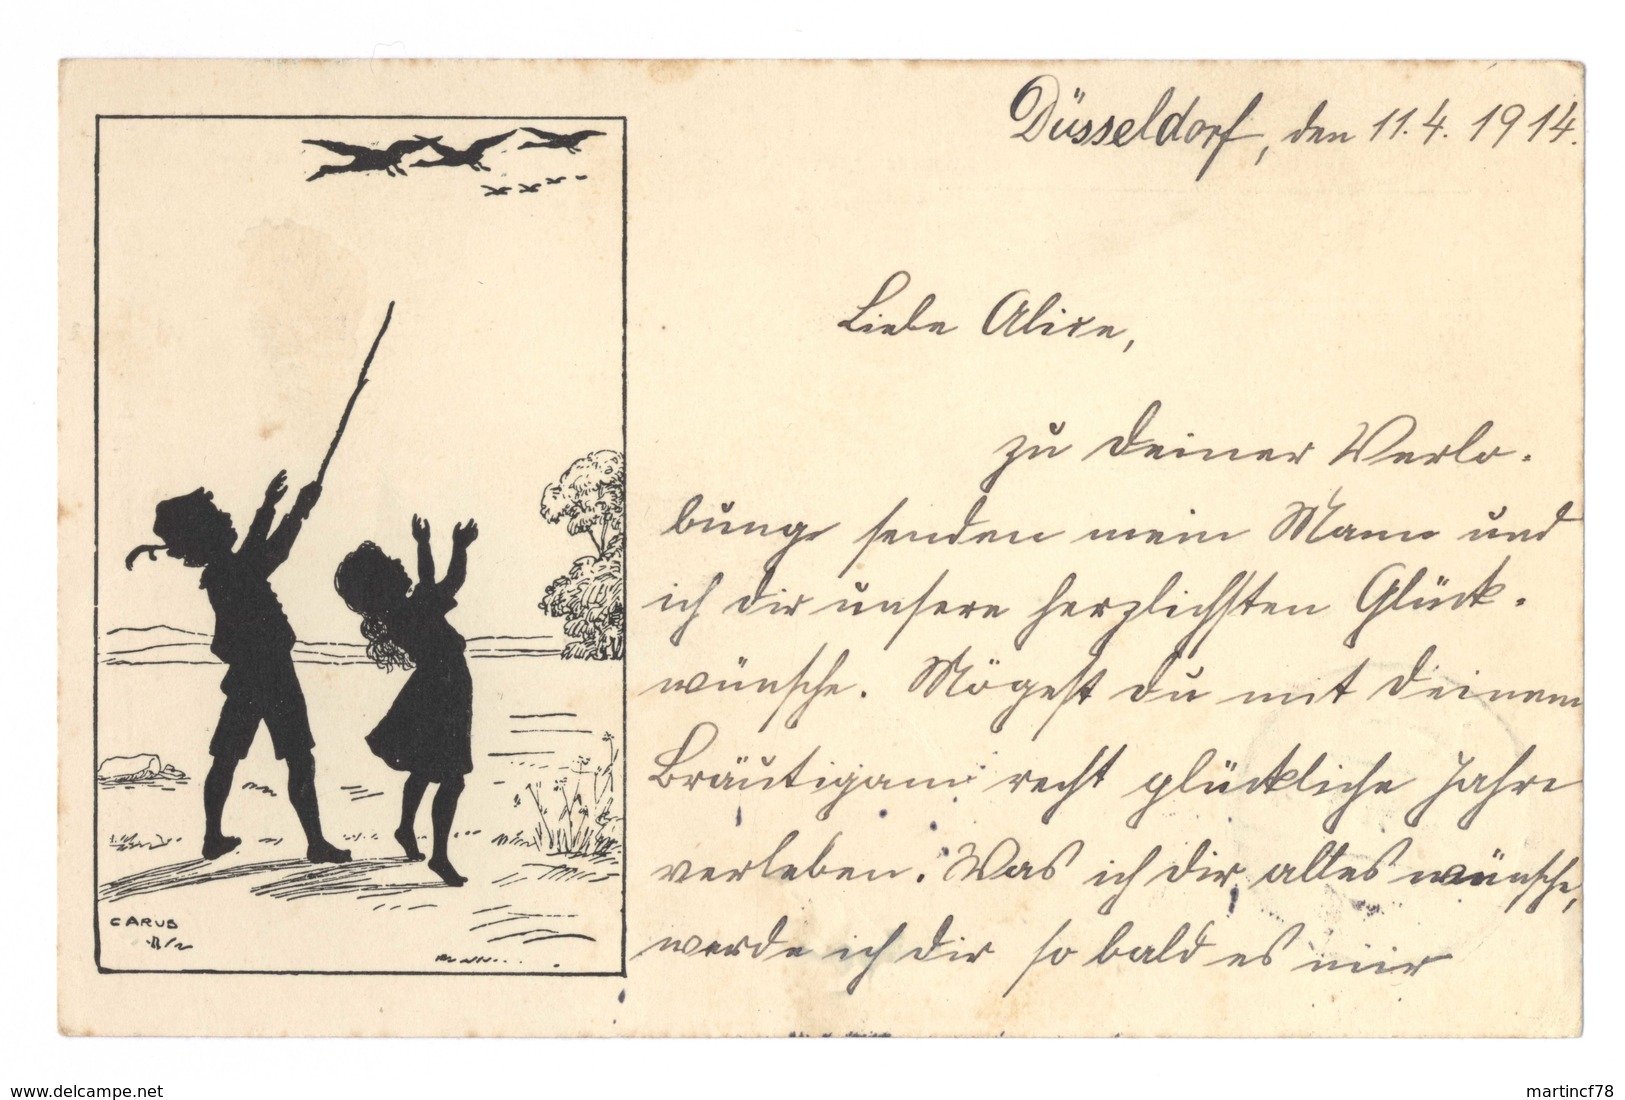 Düsseldorf, den 11.4.1914.
Liebe Alice,
zu deiner Verlo-
bung senden mein Mann und
ich dir unsere herzlichsten Glück-
wünsche. Mögest du mit deinem
Bräutigam recht glückliche Jahre
verleben. Was ich dir alles wünsche,
werde ich dir so bald es mir
CARUS
www.delcampe.net
martincf78